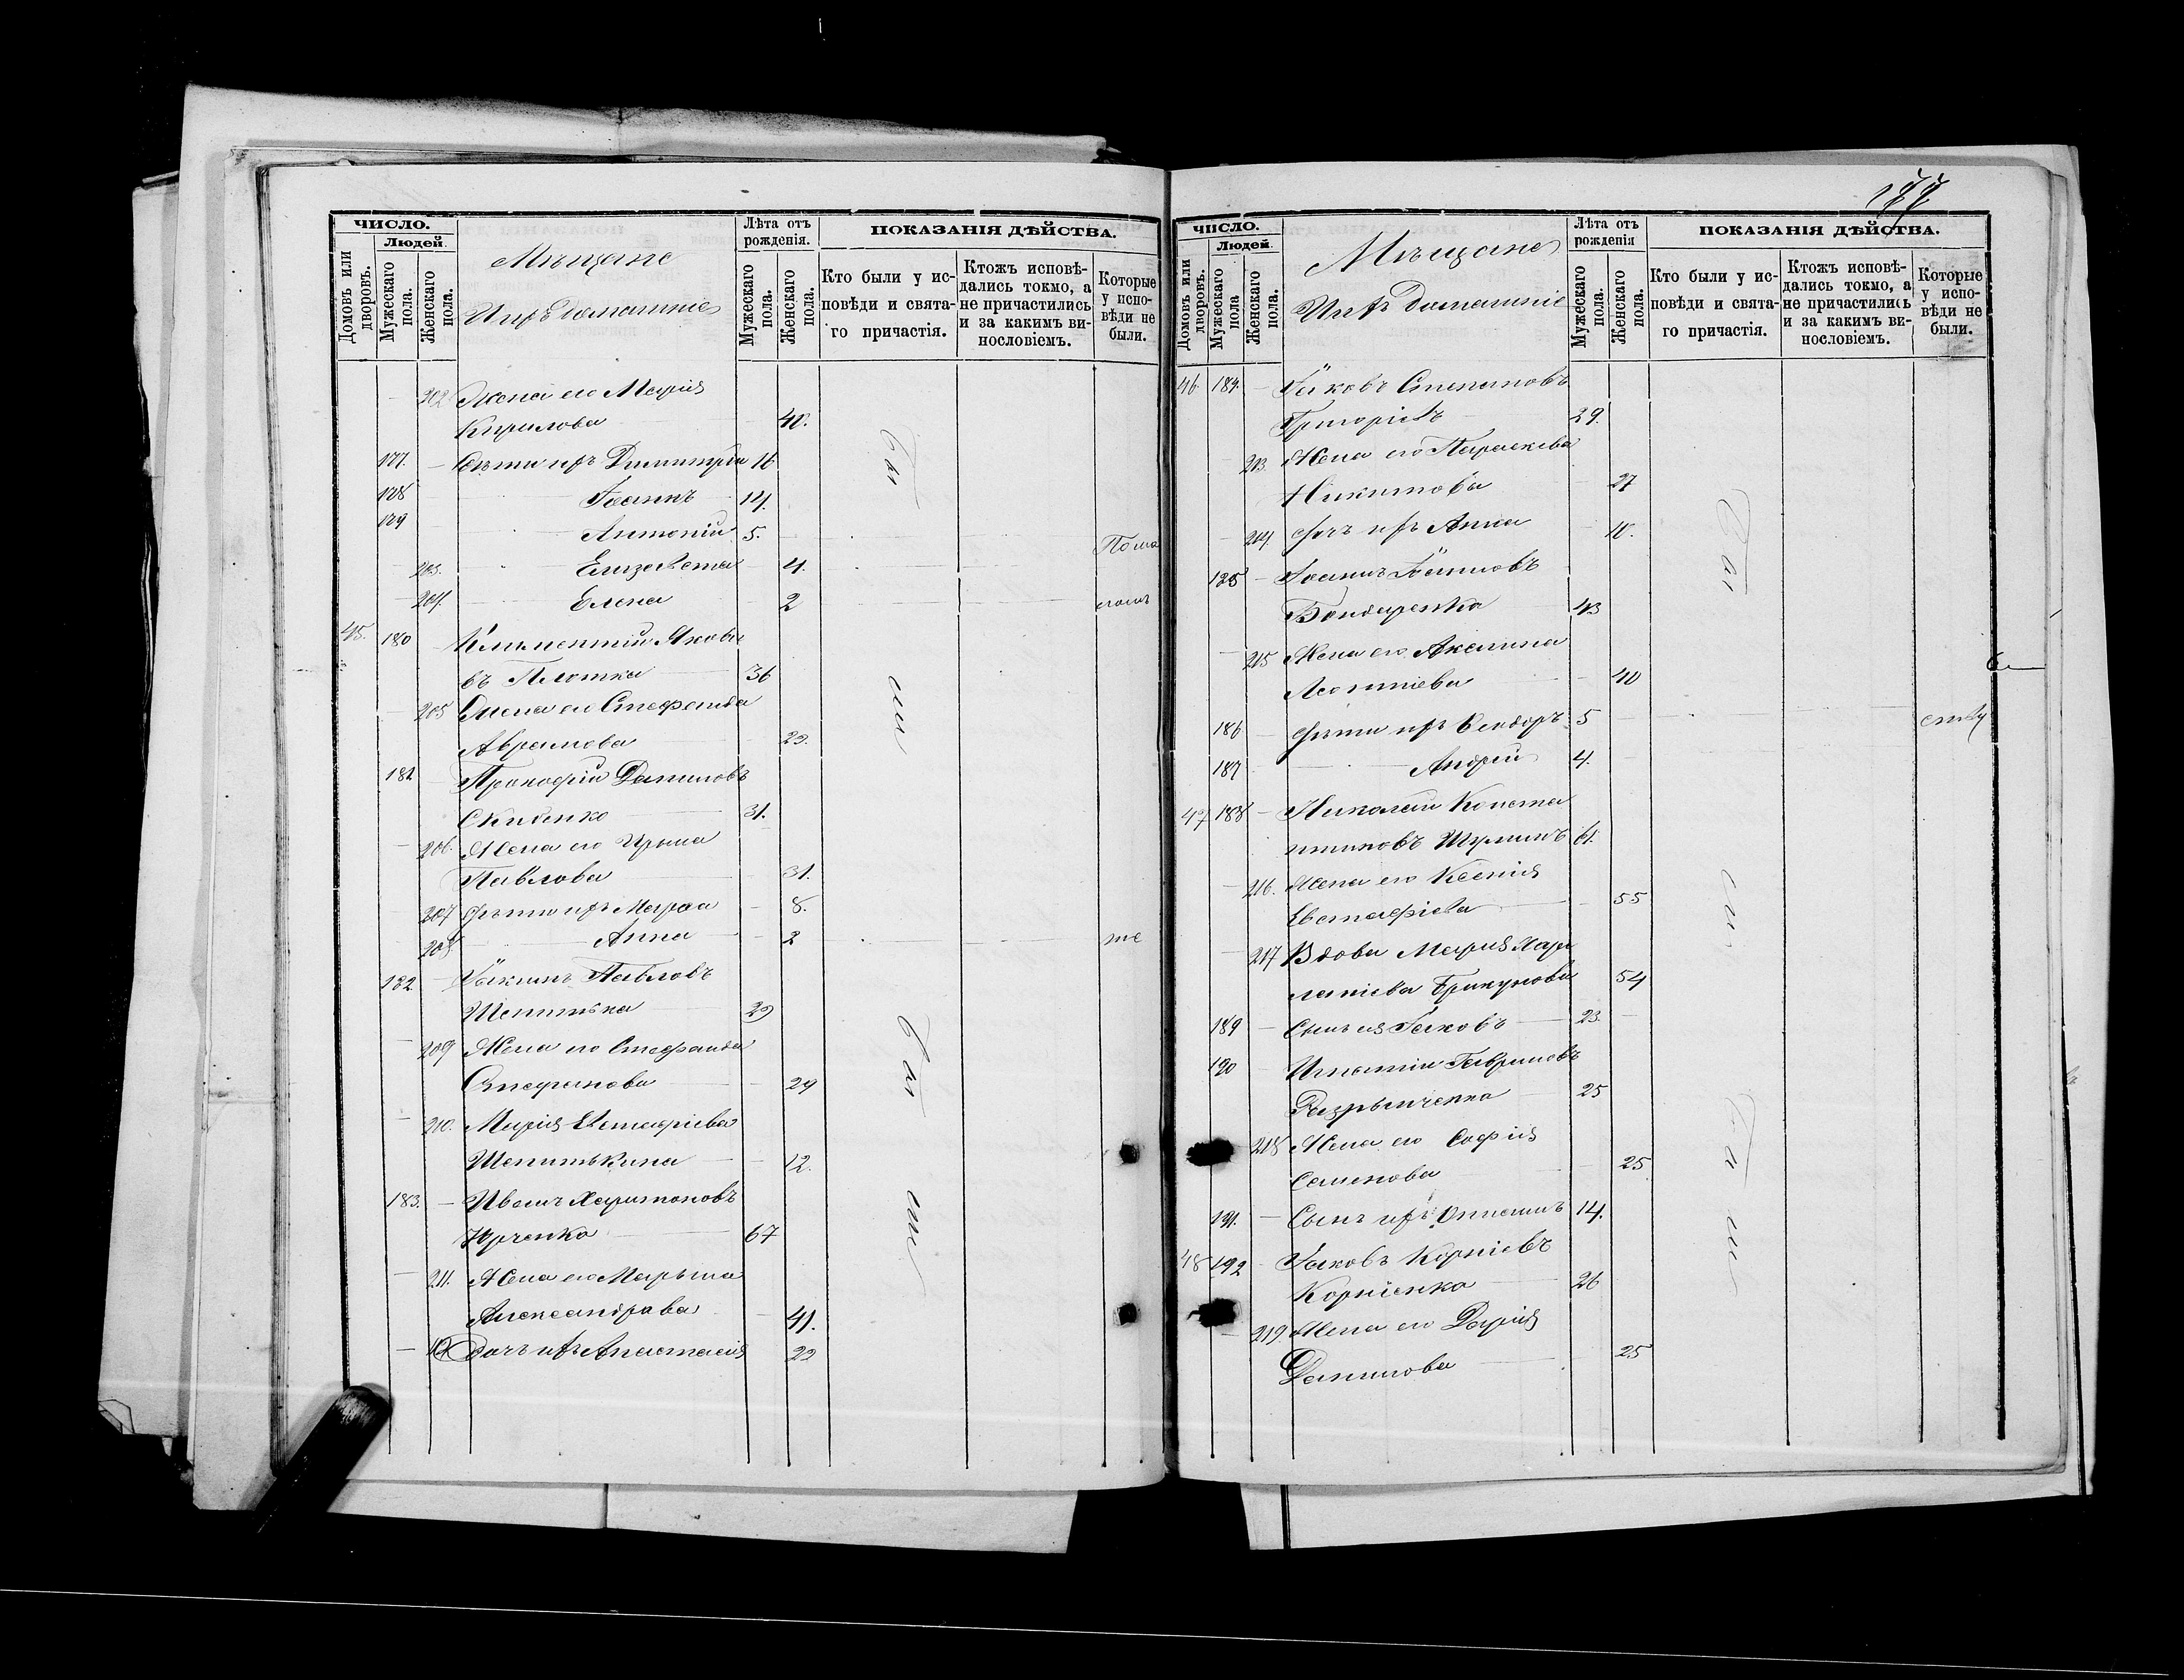 177
ЧИСЛО.
Людей.
Домовъ или дворовъ.
Мужескаго пола.
Женскаго пола.
Мѣщане
И ихъ домашніе
Лѣта отъ рожденія.
Мужескаго пола.
Женскаго пола.
ПОКАЗАНІЯ ДѢЙСТВА.
Кто были у исповѣди и святаго причастія.
Ктожъ исповѣдались токмо, а не причастились и за какимъ винословіемъ.
Которые у исповѣди не были.
202 Жена его Марія
Кирилова 40.
177. Дѣти ихъ Димитрій 16
178 Іоаннъ 14.
179 Антоній 5.
203. Елизавета 4.
204. Елена 2
45. 180 Климентій Яковле
въ Плотка 36
205 Жена его Стефанида
Аврамова 23.
181 Прокофій Даниловъ
Скибенко 31.
206. Жена его Ирина
Павлова 31.
207 Дѣти ихъ Марѳа 8.
208 Анна 2
182. Іоакимъ Павловъ
29
209 Жена его Стефанида
Стефанова 29
210. Марія Евстафіева
12.
183. Иванъ Харитоновъ
Юрченко 67
211. Жена его Марѳина
Александрова 41.
212 Дочь ихъ Анастасія 22
Бы
ли
Бы
ли
По ма
лолѣт
ЧИСЛО.
Людей.
Домовъ или дворовъ.
Мужескаго пола
Женскаго пола.
Мѣщане
Ихъ домашніе
Лѣта отъ рожденія
Мужескаго пола.
Женскаго пола.
ПОКАЗАНІЯ ДѢЙСТВА.
Кто были у исповѣди и святаго причастія.
Ктожъ исповѣдались токмо, а не причастились и за какимъ винословіемъ.
Которые у исповѣди не были.
46 184. Іаковъ Степановъ
Григорьевъ 29.
213. Жена его Параскева
Никитова 27
214. Дочь ихъ Анна 10.
185 Іоаннъ Іоанновъ
Бондаренко 43
215 Жена его Акилина
Леонтіева 40
186 Дѣти ихъ Ѳеодоръ 5
187 Андрей 4.
47 188 Николай Конста
нтиновъ Шулинъ 61.
216. Жена его Ксенія
Евстафіева 55
217 Вдова Марія Хара
лампіева 54
189 Сынъ ея Іаковъ 23.
190 Игнатій Гавриловъ
25
218 Жена его Софія
Семенова 25
191. Сынъ ихъ 14.
48 192 Іаковъ Корніевъ
Корніенко 26
219. Жена его Дарія
Данилова 25
Бы
ли
Бы
ли
ству